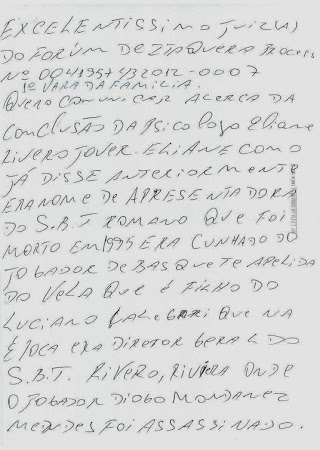 EXCELENTISSIMO JUIZ(A)
DO FORUM DE ITAQUERA PROCESS
Nº 0041957432012-0007
1º VARA DA FAMILIA.
QUERO COMUNICAR ACERCA DA
CONCLUSÃO DA PSICOLOGA ELIANE
RIVERO JOVER. ELIANE COMO
JÁ DISSE ANTERIORMENTE
ERA NOME DE APRESENTADORA
DO S.B.T ROMANO QUE FOI
MORTO EM 1995 ERA CUNHADO DO
JOGADOR DE BASQUETE APELIDA
DO VELA QUE É FILHO DO
LUCIANO CALEGARI QUE NA
ÉPOCA ERA DIRETOR GERAL DO
S.B.T. RIVERO, RIVIERA ONDE
O JOGADOR DIOGO
MENDES FOI ASSASSINADO.